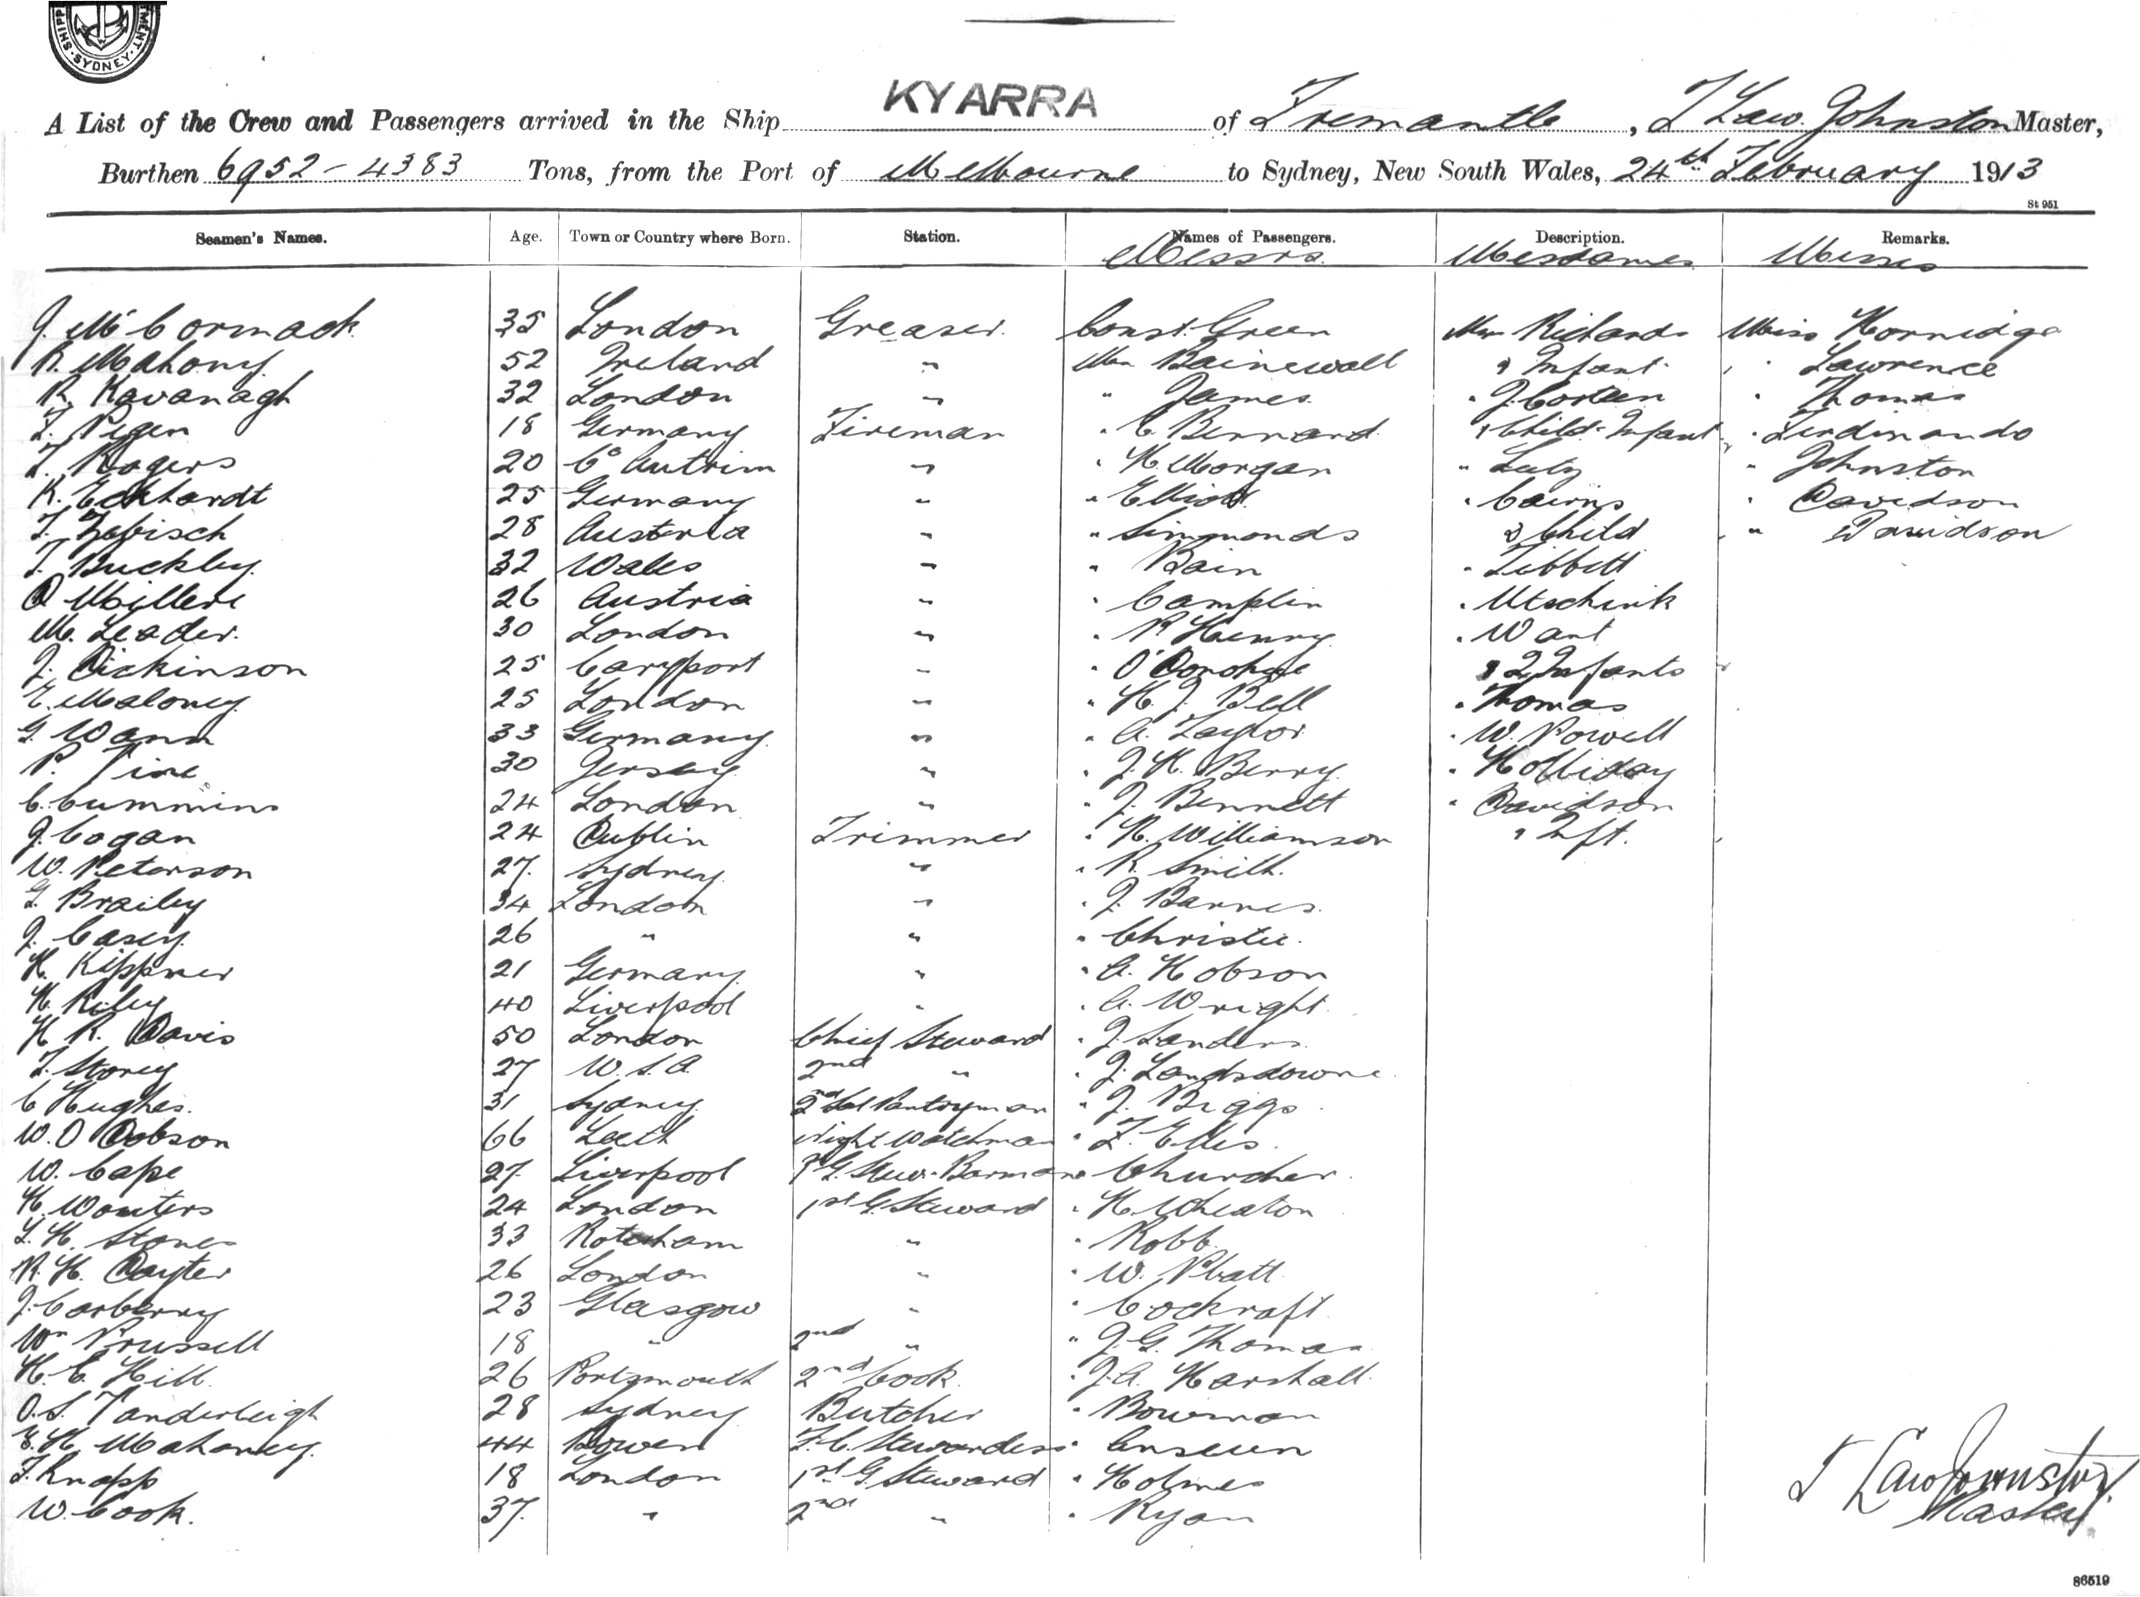 SHIPP MENT
SYDNEY
A List of the Crew and Passengers arrived in the Ship KYARRA of Fremantle, T Law. Johnston Master,
Burthen 6952 - 4383 Tons, from the Port of Melbourne to Sydney, New South Wales, 24th February 1913
St 951
Seamen's Names. Age. Town or Country where Born. Station. Names of Passengers. Description. Remarks.
Messrs. Mesdames Misses
J. McCormack. 35 London Greaser. Const. Green Mrs Richards Miss Hornidge
R. Mahony 52 Ireland " Mr Bainewall & Infant " Lawrence
R. Kavanagh 32 London " " James " J. " Thomas
F. 18 Germany Fireman " C Bernard & Child & Infant " Ferdinando
T. Rogers 20 Co Antrim " " H. Morgan " " Johnston
K. Eckhardt 25 Germany " " Elliott " Cairns " Davidson
F. 28 Austeria " " Simmonds & Child " Davidson
T. Buckley 32 Wales " " Bain " Tibbett
26 Austria " " Camplin "
M. Leader. 30 London " " P. Henry " Want
J. Dickinson 25 " " O'Donohue & 2 Infants
E. Maloney 25 London " " H. J. Bell " Thomas
G. Wann 33 Germany " " A. Taylor " W. Powell
P. 30 Jersey " " J. H. Berry " Holliday
C. Cummins 24 London " " J. Bennett " Davidson
J. Cogan 24 Dublin Trimmer " H. Williamson & Inft.
W. Peterson 27. Sydney. " " R. Smith.
G. Brailey 34 London " " J. Barnes.
J. Casey. 26 " " " Christie.
H. Kippner 21 Germany. " " A. Hobson
H. Riley 40 Liverpool " " A. Wright.
H R. Davis 50 London Chief Steward " J. Sanders.
F. Storey 27 U.S.A. 2nd " " J. Landsdowne.
C Hughes. 31 Sydney. 2nd Pantryman " J. Biggs.
W. O Dobson 66 Leith Night Watchman " F. Ellis.
W. Cape 27. Liverpool Barman " Churcher.
H. Wouters 24 London 1st G. Steward " H. Wheaton
H. Stones 33 " " Robb.
H. 26 London " " W. Platt.
J. Carberry 23 Glasgow " " Cockraft.
Wm Prussell 18 " 2nd " " J. G. Thomas
H. C. Hill. 26 Portsmouth 2nd Cook. " J. A. Marshall.
O. S. Vanderleigh 28 Sydney Butcher " Bowman
E. H. Mahoney. 44 Bowen F. C. Stewardess "
F. Knapp 18 London 1st G. Steward " Holmes
W. Cook. 37. " 2nd " " Ryan
T Law Johnston.
Master.
86519